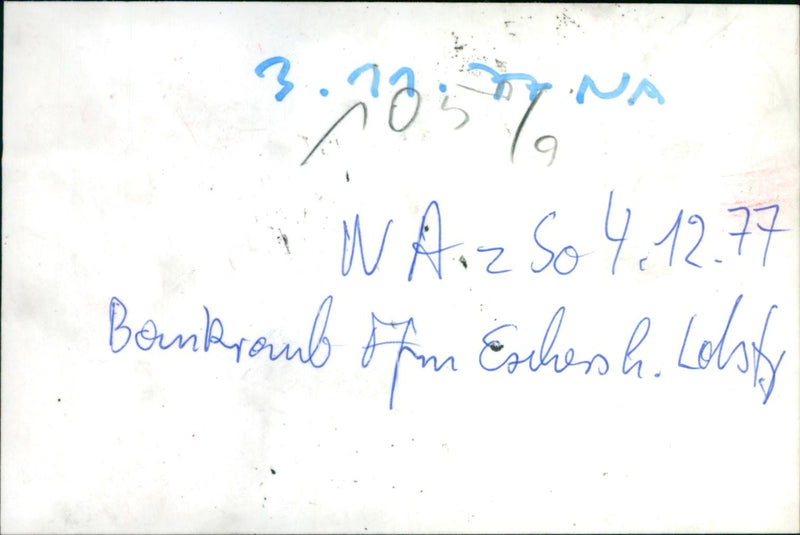 3.11.77 NA
105/9
WA z So 4.12.77
Bankraub Ffm Eschersh. Ldstr